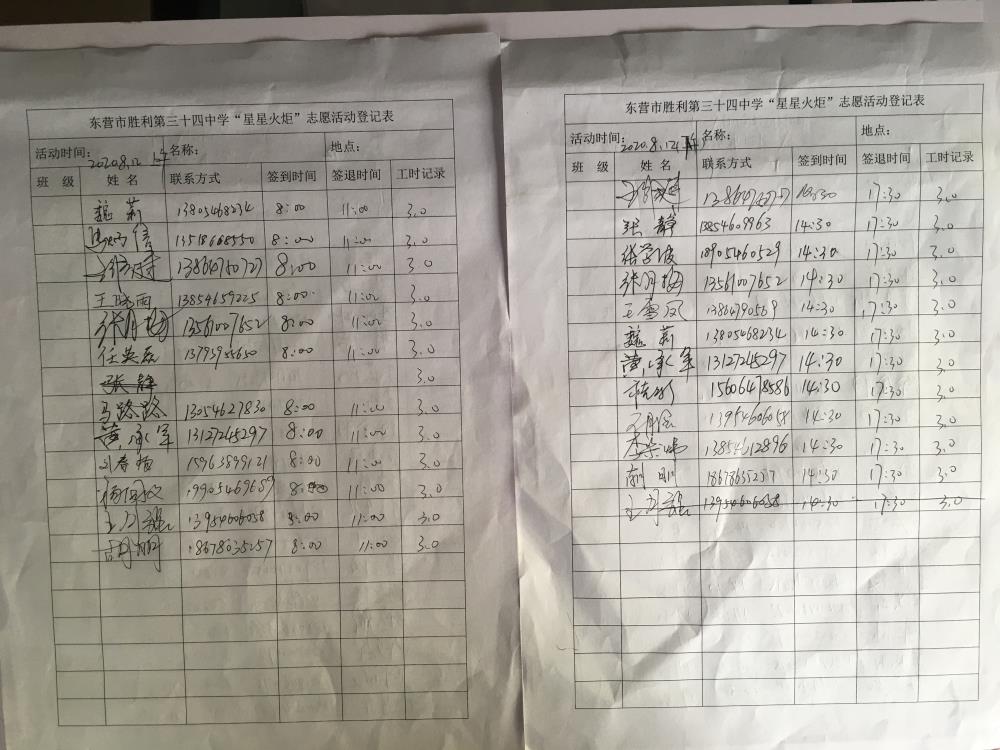 东营市胜利第三十四中学“星星火炬”志愿活动登记表
活动时间: 2020.8.12 上午 名称: 地点:
班 级 姓 名 联系方式 签到时间 签退时间 工时记录
魏莉 13805468234 8:00 11:00 3.0
13518668550 8:00 11:00 3.0
13864750727 8:00 11:00 3.0
王晓雨 13854659225 8:00 11:00 3.0
张月梅 13561007652 8:00 11:00 3.0
任英磊 8:00 11:00 3.0
张静 3.0
马路路 13054627830 8:00 11:00 3.0
黄承军 13127245297 8:00 11:00 3.0
刘春梅 15963899121 8:00 11:00 3.0
8:00 11:00 3.0
13954606058 8:00 11:00 3.0
胡丽 18678635257 8:00 11:00 3.0
东营市胜利第三十四中学“星星火炬”志愿活动登记表
活动时间: 2020.8.12下午 名称: 地点:
班 级 姓 名 联系方式 签到时间 签退时间 工时记录
17:30 3.0
张静 13854609963 14:30 17:30 3.0
18905460529 14:30 17:30 3.0
张月梅 13561007652 14:30 17:30 3.0
王雪凤 13864790569 14:30 17:30 3.0
魏莉 13805468234 14:30 17:30 3.0
黄承军 13127245297 14:30 17:30 3.0
15606478586 14:30 17:30 3.0
13954606058 14:30 17:30 3.0
13854612896 14:30 17:30 3.0
18678635257 14:30 17:30 3.0
13954606058 14:30 17:30 3.0